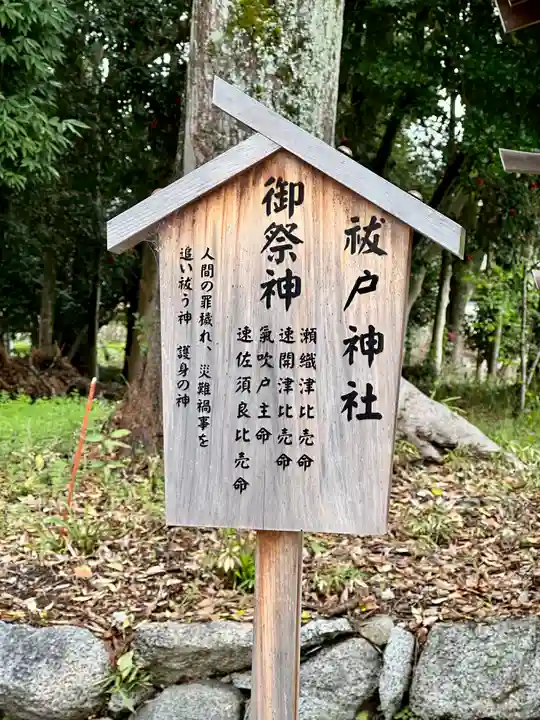 祓戸神社
御祭神
瀬織津比売命
速開津比売命
氣吹戸主命
速佐須良比売命
人間の罪穢れ、災難禍事を
追い祓う神　護身の神